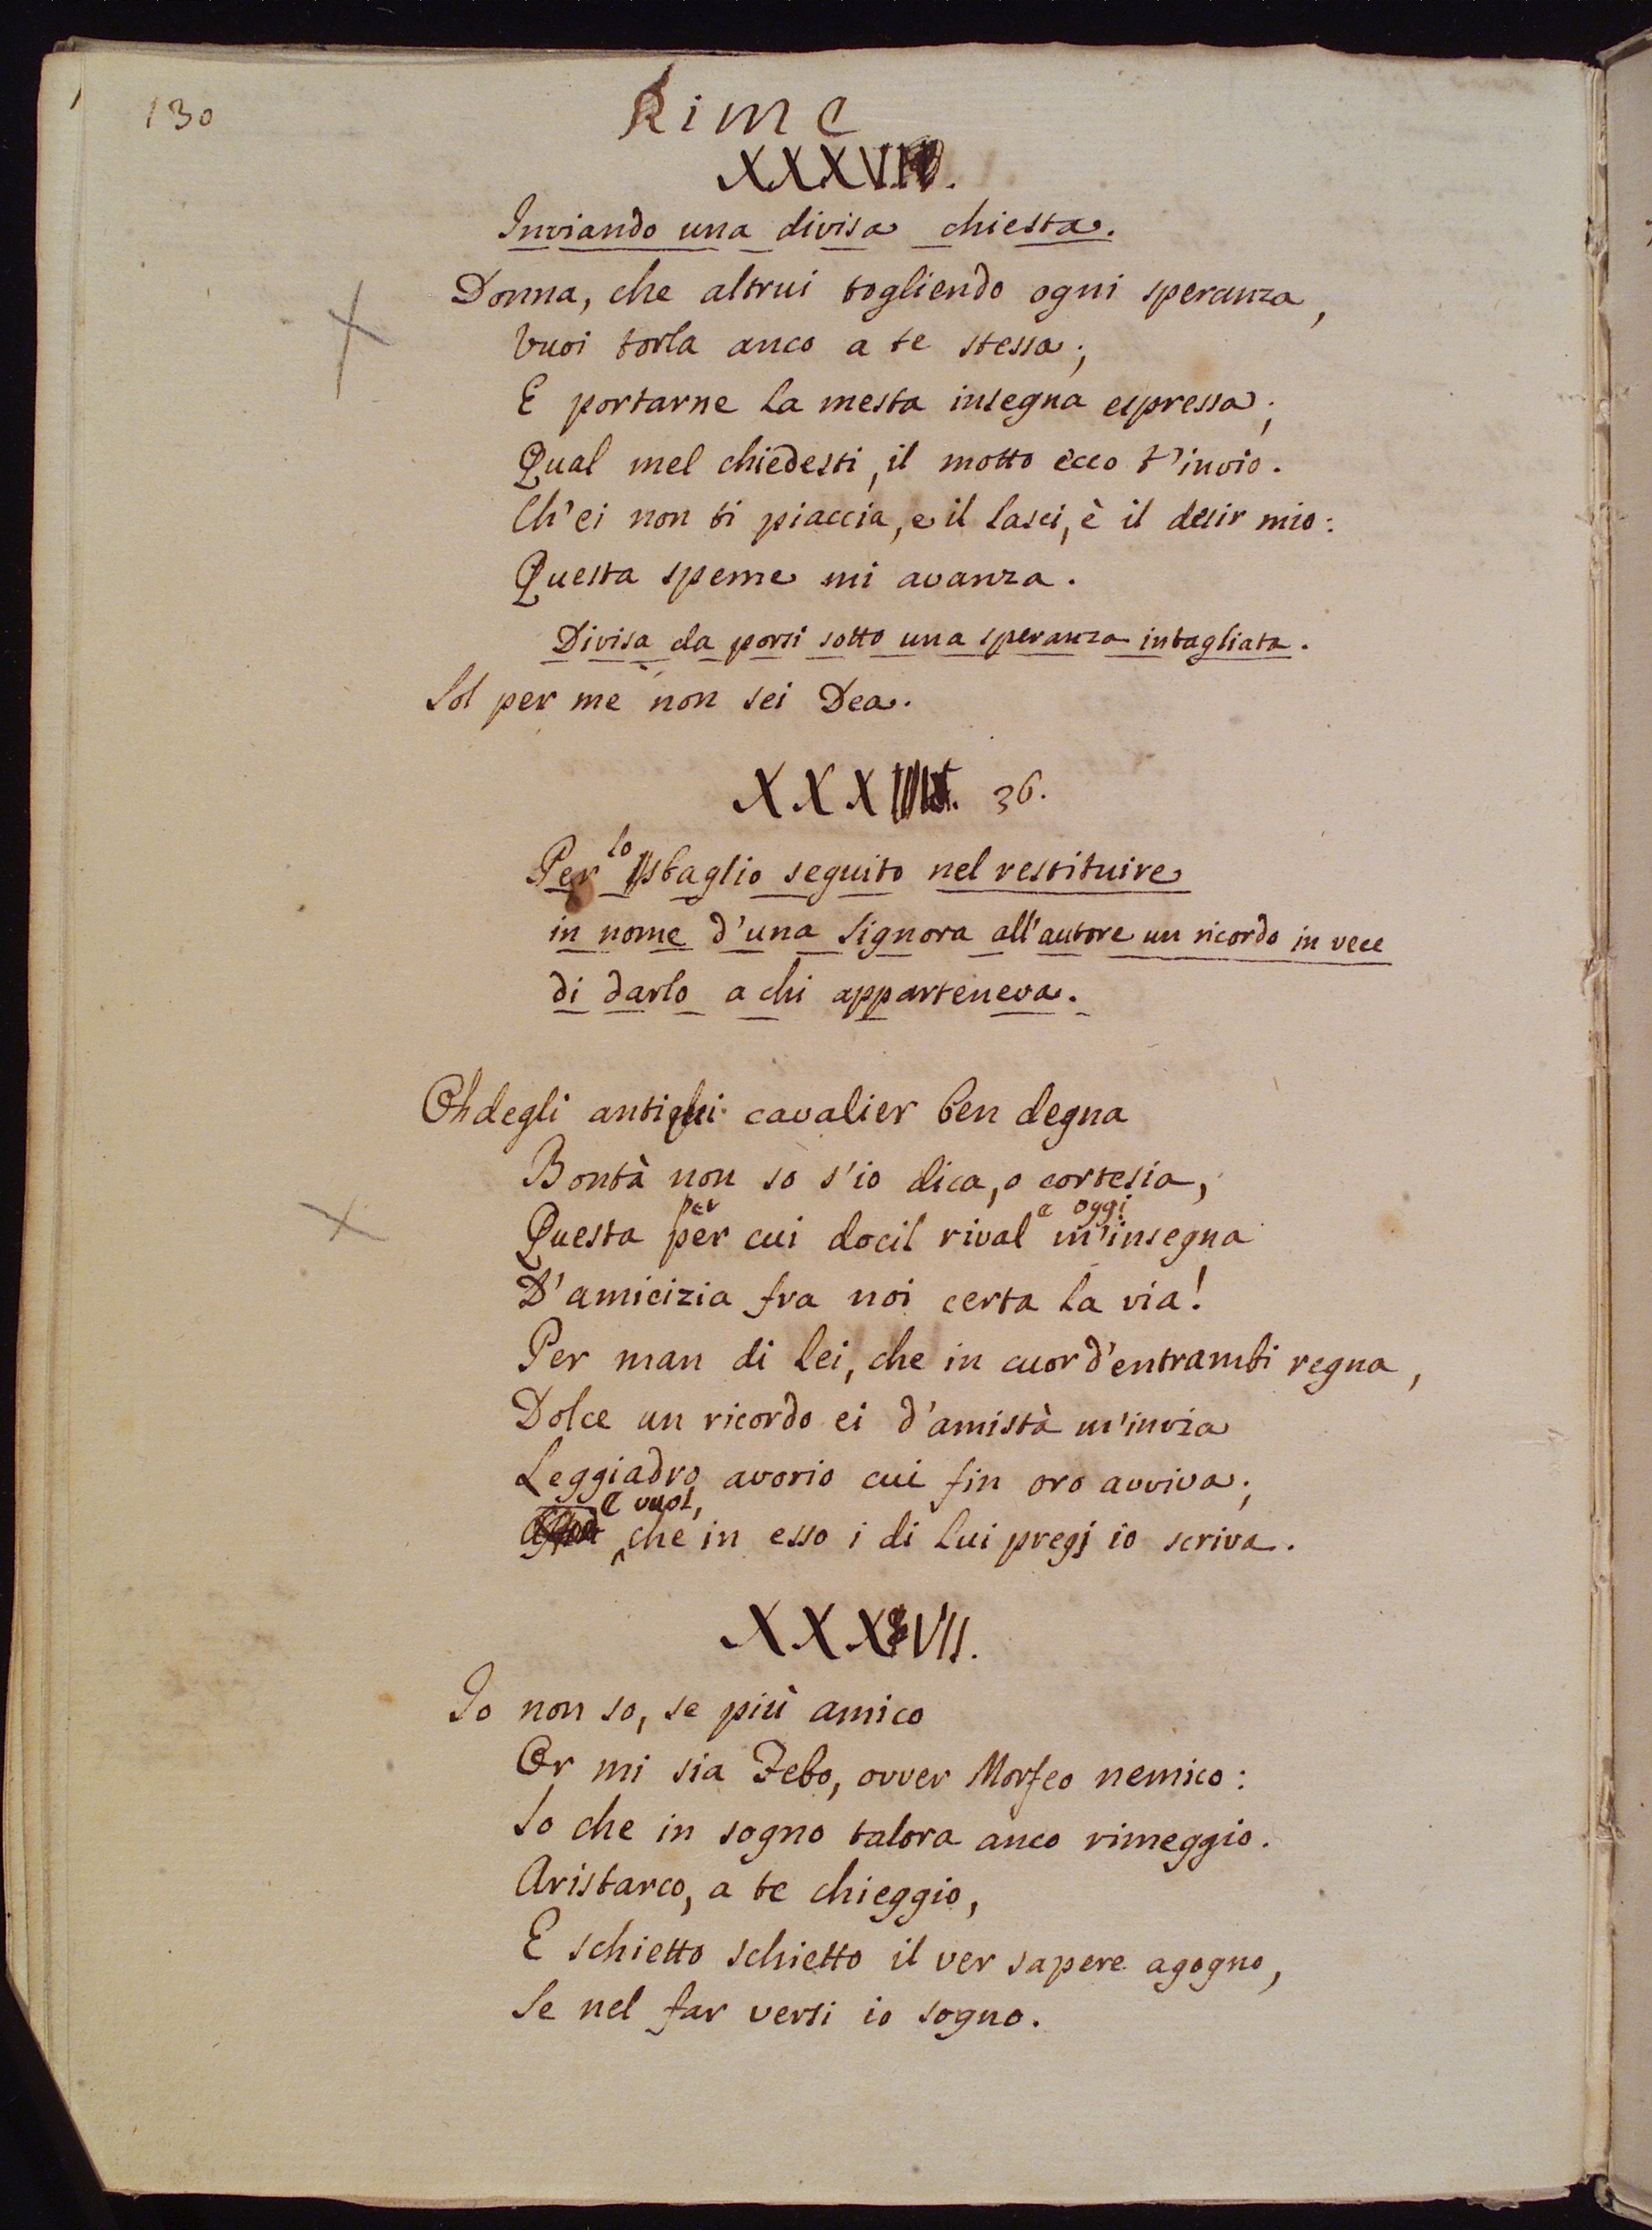 130
Rime
XXXVII.
Inviando una divisa chiesta.
Donna, che altrui togliendo ogni speranza,
Vuoi torla anco a te stessa;
E portarne la mesta insegna espressa;
Qual mel chiedesti, il motto ecco t'invio.
Ch'ei non ti piaccia, e il lasci, è il desir mio:
Questa speme mi avanza.
Divisa da porsi sotto una speranza intagliata.
Sol per me non sei Dea.
XXX 36.
Per lo sbaglio seguito nel restituire
in nome d'una Signora all'autore un ricordo in vece
di darlo a chi apparteneva.
Oh degli antichi cavalier ben degna
Bontà non so s'io dica, o cortesia,
per e oggi
Questa per cui docil rival m'insegna
D'amicizia fra noi certa la via!
Per man di lei, che in cuor d'entrambi regna,
Dolce un ricordo ei d'amistà m'invia
Leggiadro avorio cui fin oro avviva;
E vuol,
che in esso i di lui pregj io scriva.
XXXVII.
Io non so, se più amico
Or mi sia Febo, ovver Morfeo nemico:
So che in sogno talora anco rimeggio.
Aristarco, a te chieggio,
E schietto schietto il ver sapere agogno,
Se nel far versi io sogno.